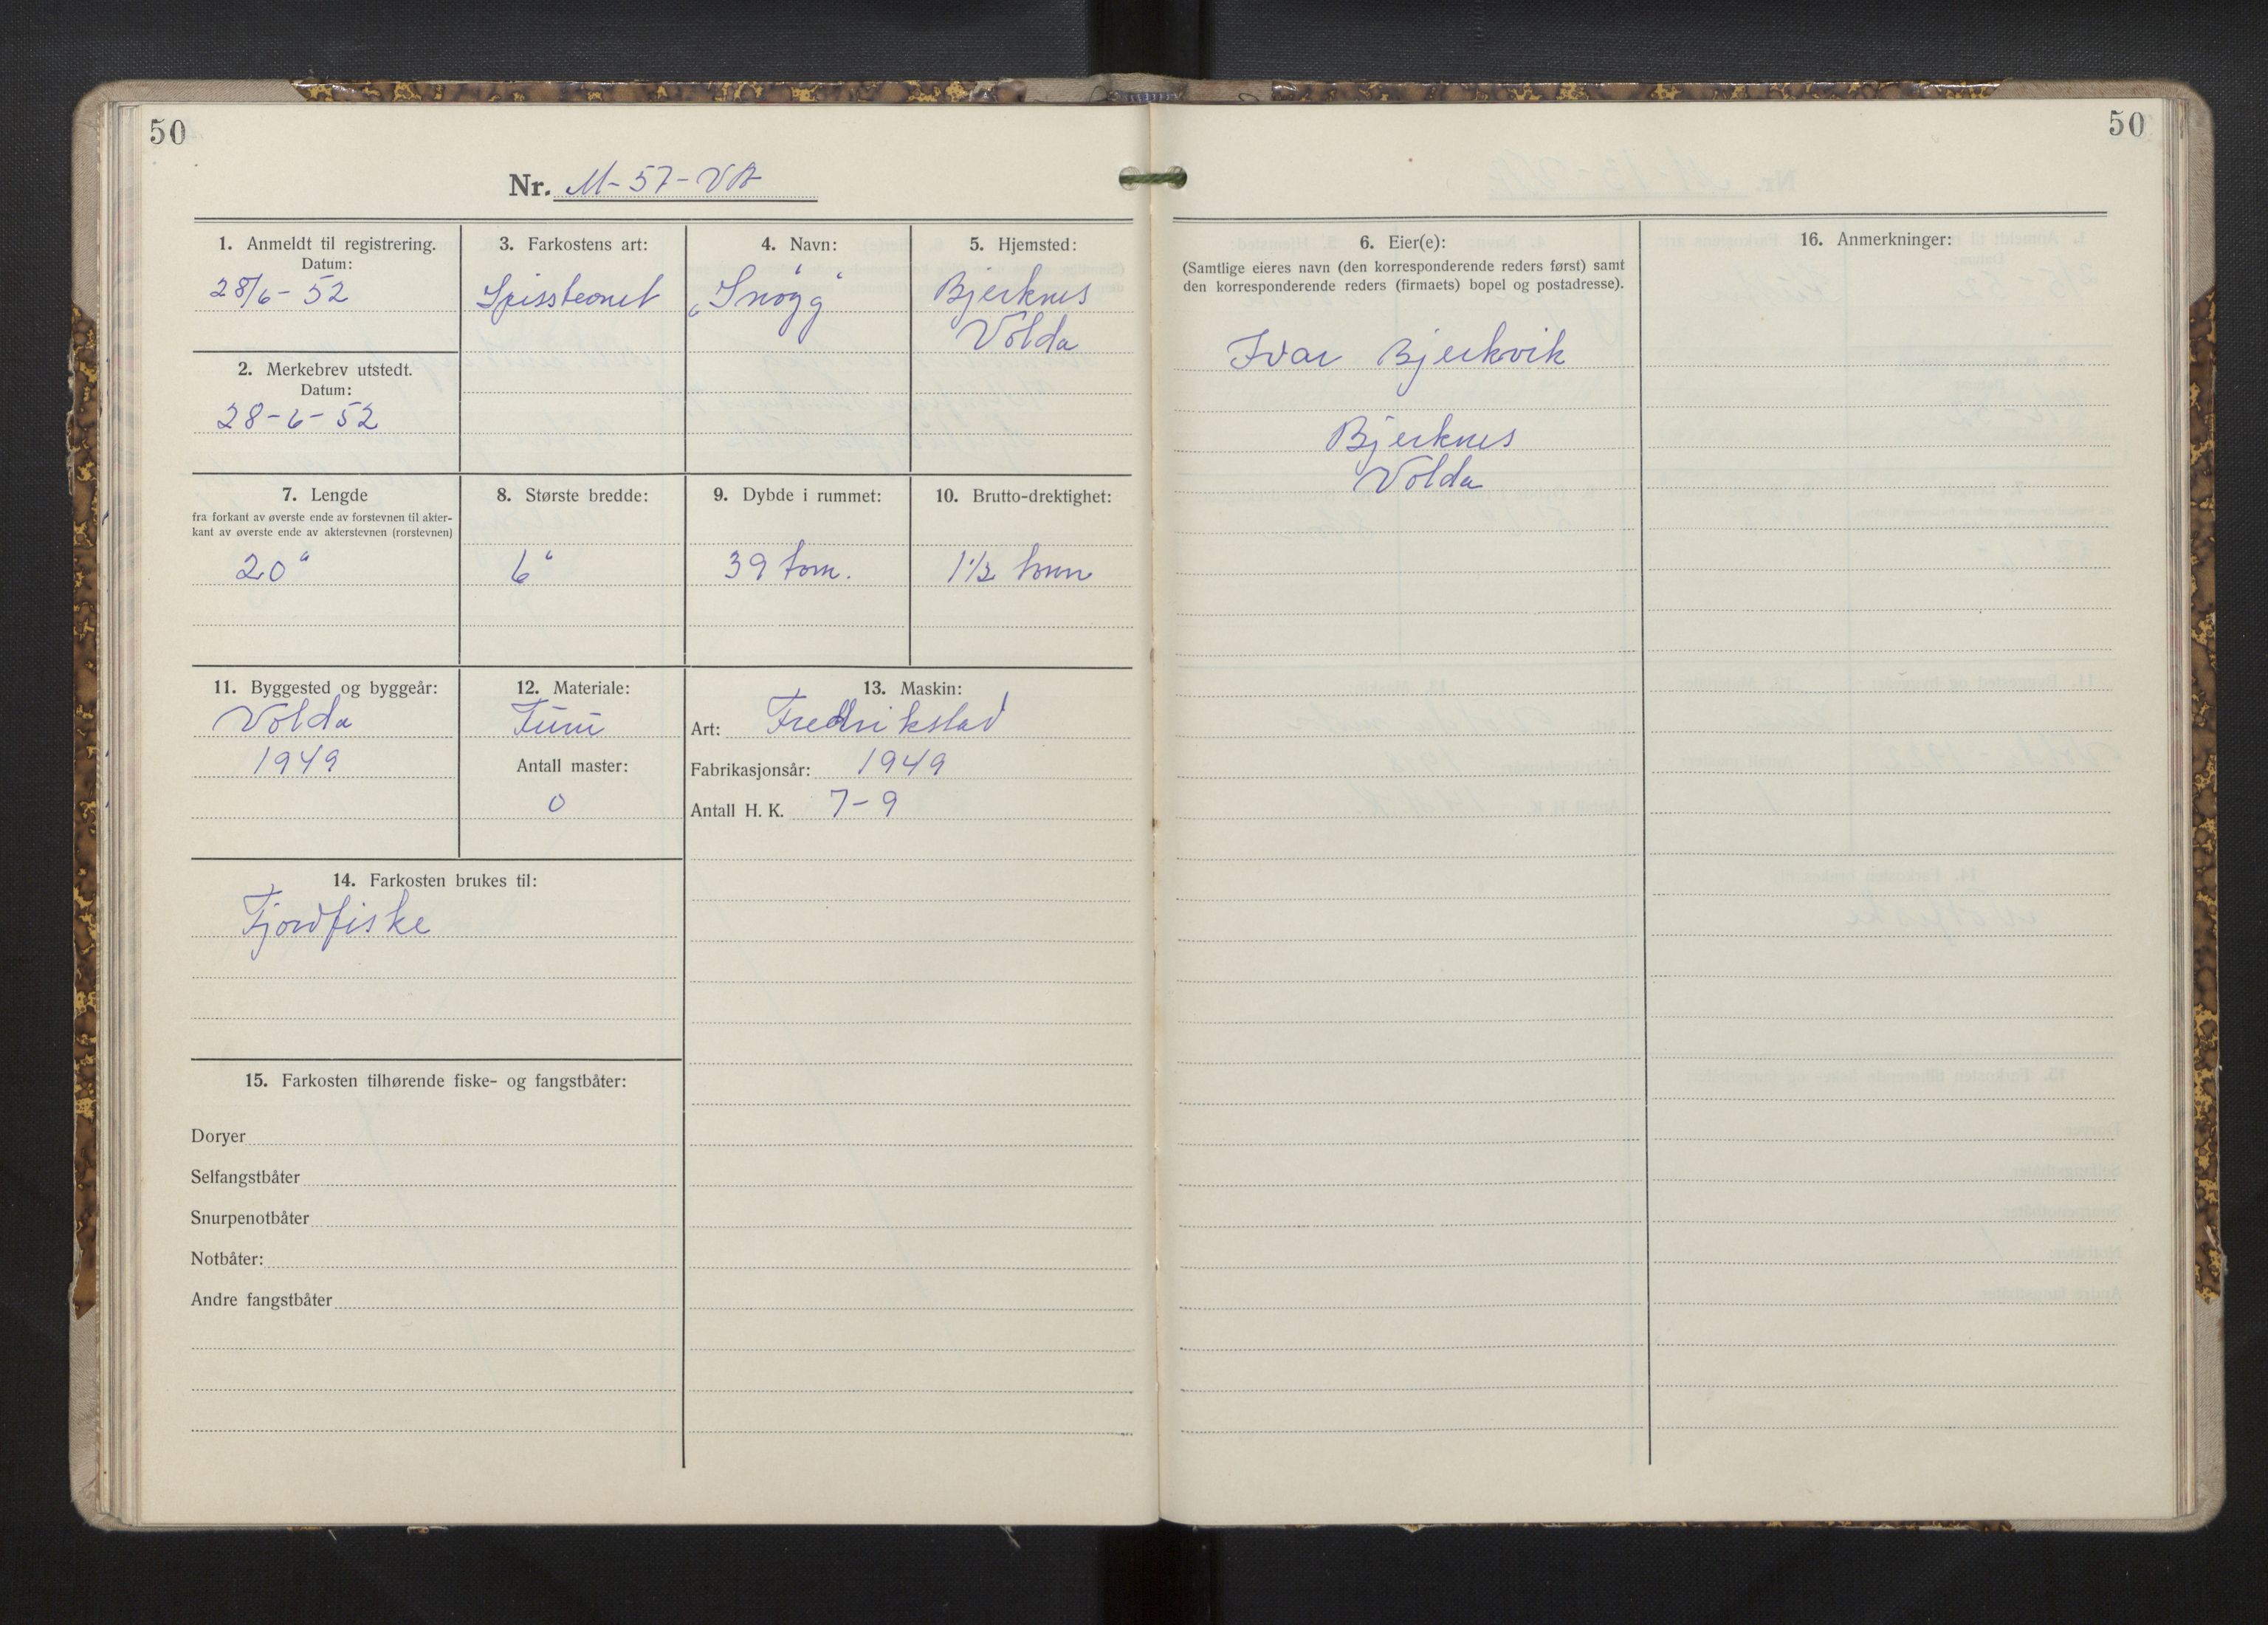 50
Nr. M-57-VD
1. Anmeldt til registrering.
Datum:
28/6-52
2. Merkebrev utstedt.
Datum:
28-6-52
3. Farkostens art:
4. Navn:
"Snøgg"
5. Hjemsted:
Bjerknes
Volda
7. Lengde
fra forkant av øverste ende av forstevnen til akter-
kant av øverste ende av akterstevnen (rorstevnen)
20"
8. Største bredde:
6"
9. Dybde i rummet:
39 tom.
10. Brutto-drektighet:
1½ tonn
11. Byggested og byggeår:
Volda
1949
12. Materiale:
Furu
Antall master:
0
13. Maskin:
Art: Fredrikstad
Fabrikasjonsår: 1949
Antall H. K. 7-9
14. Farkosten brukes til:
Fjordfiske
15. Farkosten tilhørende fiske- og fangstbåter:
Doryer
Selfangstbåter
Snurpenotbåter
Notbåter:
Andre fangstbåter
50
6. Eier(e):
(Samtlige eieres navn (den korresponderende reders først) samt
den korresponderende reders (firmaets) bopel og postadresse).
Ivar Bjerkvik
Bjerknes
Volda
16. Anmerkninger: